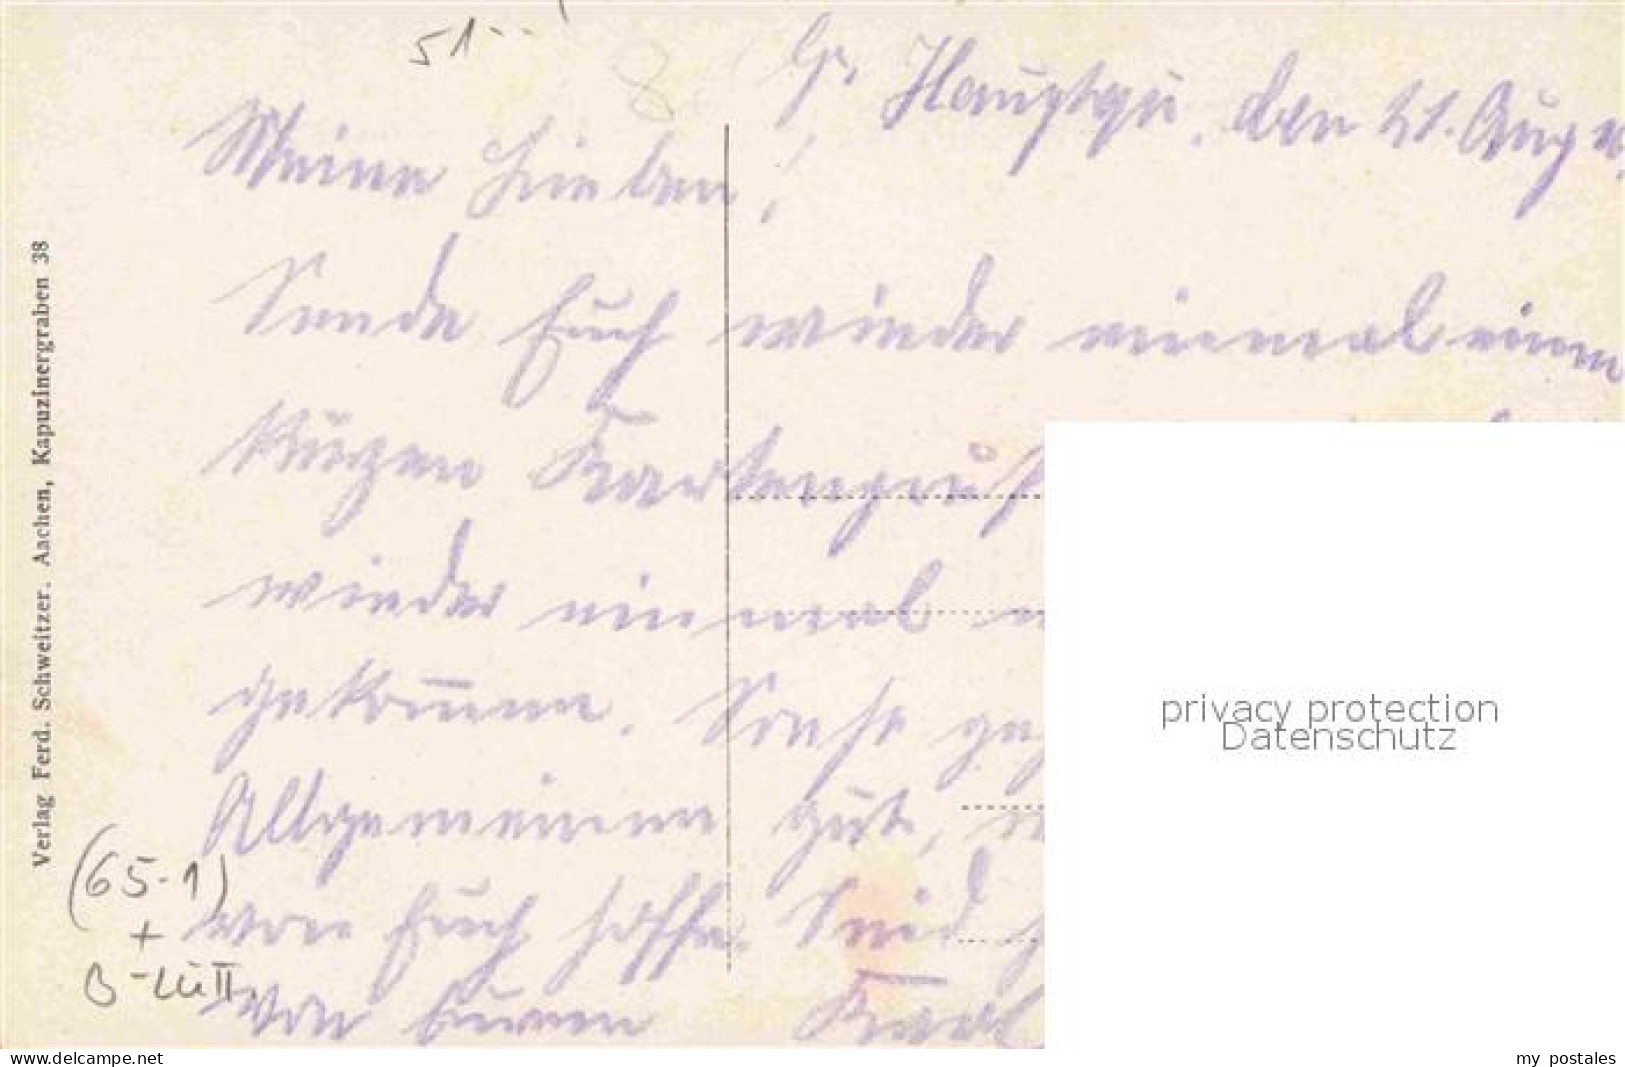 51--
Gr. Hauptqu, den 21. Aug
Meine Lieben!
Sende Euch wieder einmal einen
kurzen Kartengruß
wieder einmal
gekommen. Sonst
Allgemeinen gut,
von Euch hoffe. Seid
von Eurem Karl
Verlag Ferd. Schweitzer. Aachen, Kapuzinergraben 38
(65-1)
+
privacy protection
Datenschutz
www.delcampe.net
my_postales